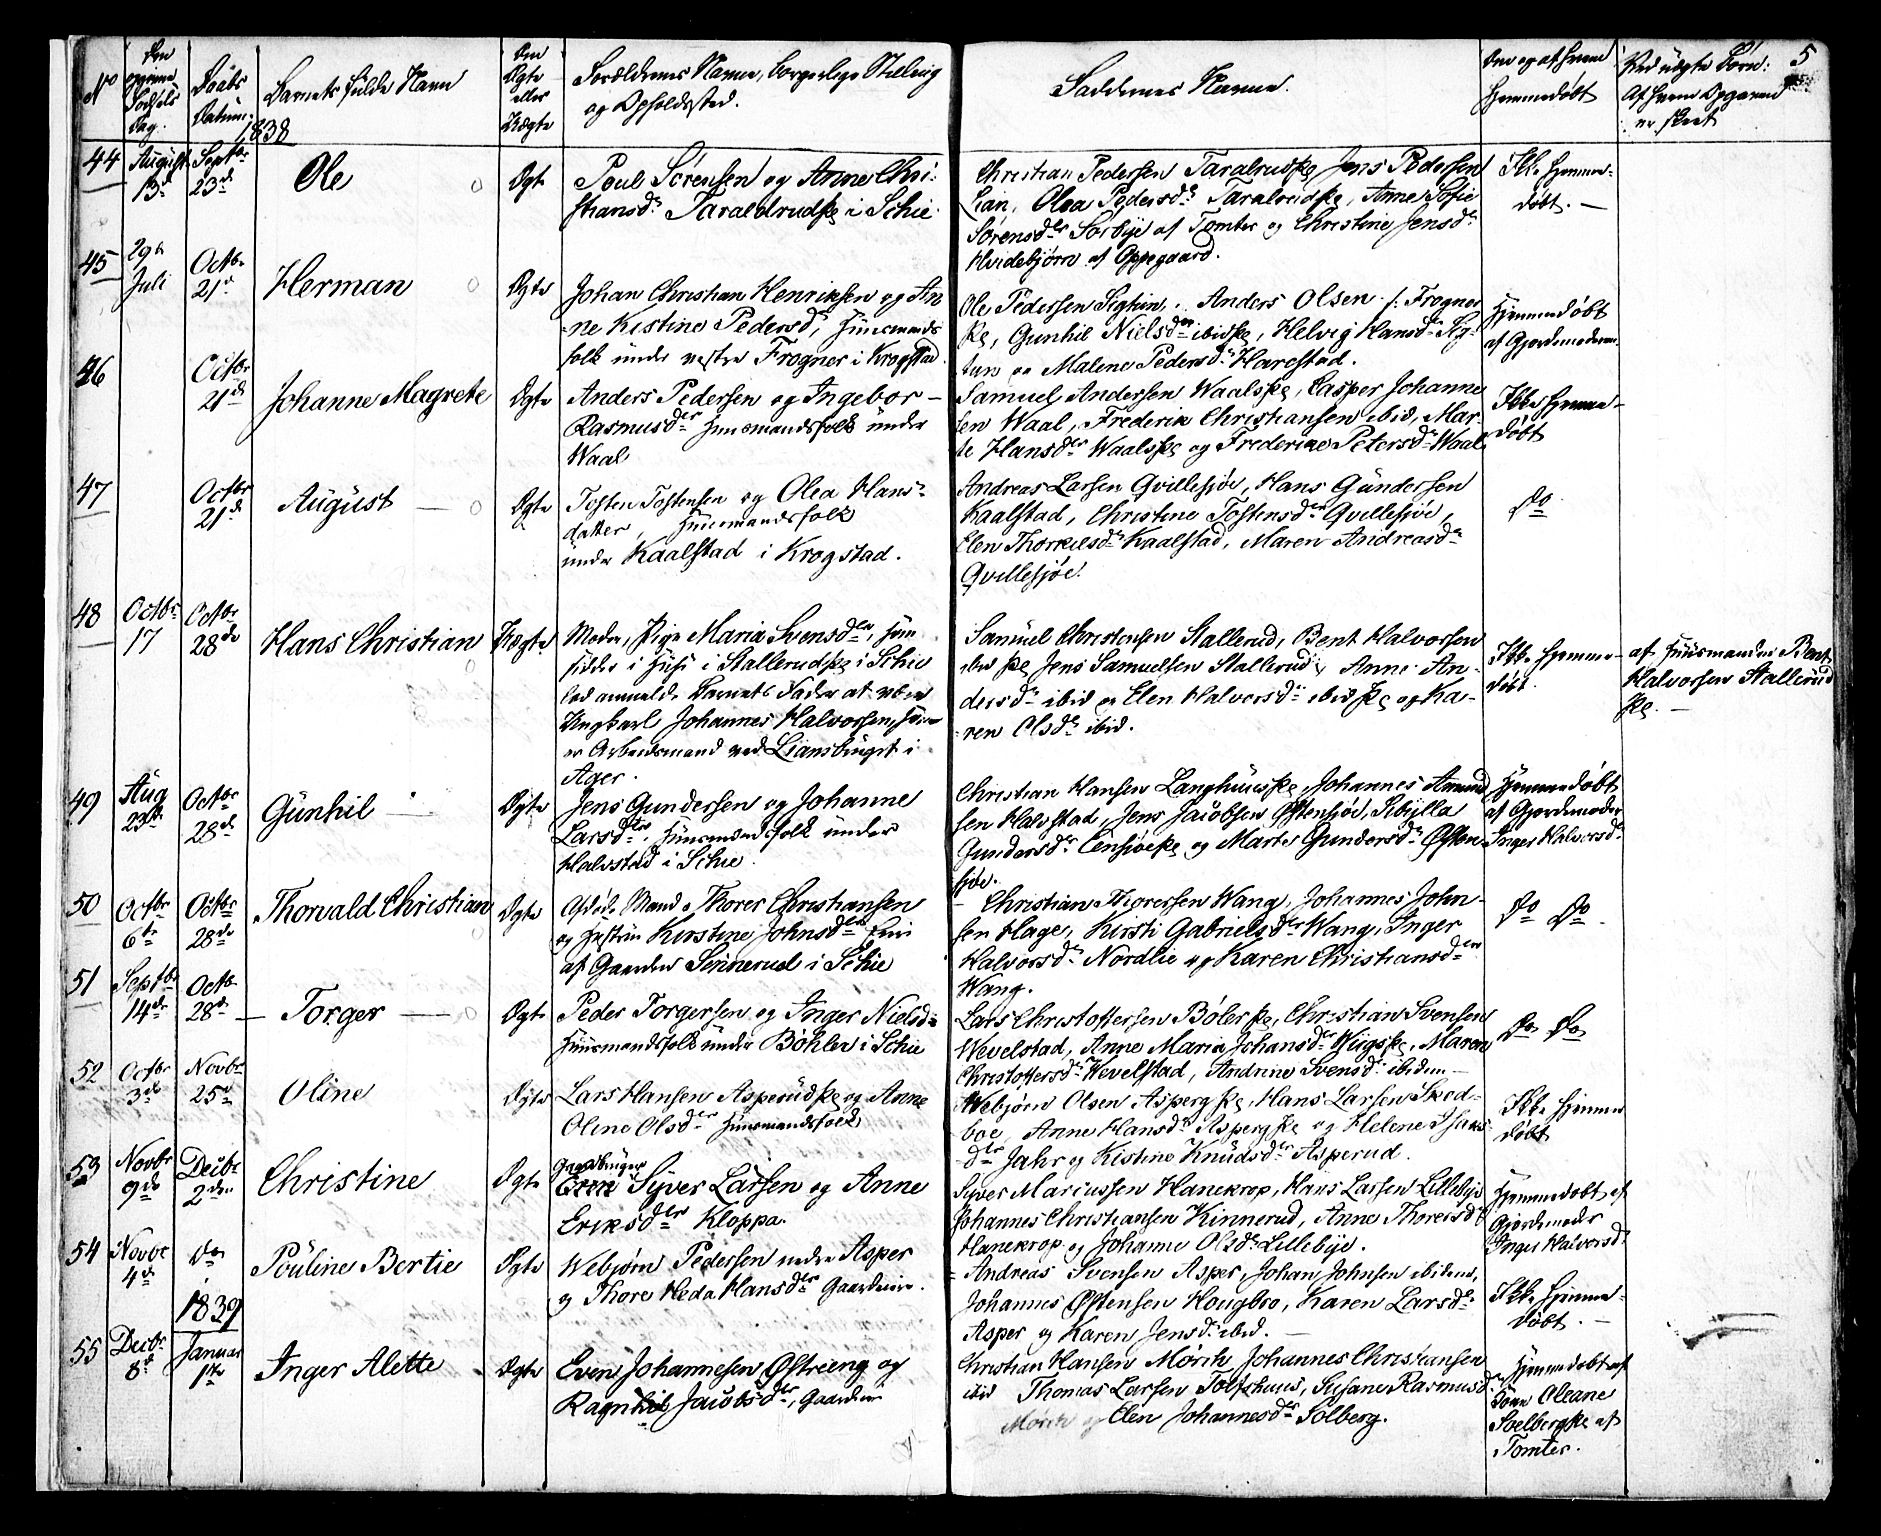 No
Den egentlige Fødsels Dag.
Daabs Datum.
Barnets fulde Navn
Om Ægte eller Uægte
Forældrenes Navne, borgerlige Stilling
og Opholdssted.
Faddernes Navne.
Om og af hvem
hjemmedøbt
Ved uægte Børn:
Af hvem Opgaven
er skeet
5
1838
44 August 13de Septbr 23de Ole Ægte
Poul Sörensen og Anne Chri-
stiansdr Taraldrudpl. i Schie.
Christian Pedersen Taralrudpl, Jens Pedersen
Lian, Olea Pedersdr Taralrudpl, Anne Sofie
Sörensdtr Sörbye af Tomter og Christine Jensdr
Hvidebjörn af Oppegaard.
Ikke hjemme-
døbt. —
45 29de Juli Octbr 21de Herman Ægte
Johan Christian Henriksen og An
ne Kistine Pedersdr, Huusmands
folk under vestre Frogner i Krogstad
Ole Pedersen Sigtun, Anders Olsen Frogner
pl, Gunhil Nielsdtr ibidpl, Helvig Hansdr Sig-
tun og Malene Pedersdr Harestad.
Hjemmedøbt
af Gjordemoderen
46 Octbr 21de Johanne Magrete Ægte
Anders Pedersen og Ingebor —
Rasmusdtr Huusmandsfolk under
Waal
Samuel Andersen Waalspl, Casper Johanne
sen Waal, Frederik Christiansen ibid, Mar-
te Hansdtr Waalspl og Frederikke Petersdr Waal
Ikke hjemme-
døbt
47 Octbr 21de August — Ægte
Tosten Tostensen og Olea Hans-
datter, Huusmandsfolk
under Kaalstad i Krogstad.
Andreas Larsen Qvillesjöe, Hans Gundersen
Kaalstad, Christine Tostensdtr Qvillesjöe,
Elen Thorkilsdr Kaalstad, Maren Andreasdr
Qvillesjöe.
Do
48 Octbr 17 Octbr 28de Hans Christian Uægte
Moder, Pige Maria Svensdtr, som
sidder i Huus i Stallerudpl i Schie
lod anmelde Barnets Fader at være
Ungkarl Johannes Halvorsen, som
er Arbeidsmand ved Liansbruget i
Ager.
Samuel Christensen Stallerud, Bent Halvorsen
ibid pl, Jens Samuelsen Stallerud, Anne An-
dersdr ibid og Elen Halvorsdr ibid pl og Ka-
ren Olsdr ibid.
Ikke hjemme-
døbt.
af Huusmanden Bent
Halvorsen Stallerud
pl. —
49 Aug 23de Octbr 28de Gunhil — Ægte
Jens Gundersen og Johanne
Larsdtr, Huusmandsfolk under
Halvstad i Schie.
Christian Hansen Langhuuspl, Johannes Amund
sen Halvstad, Jens Jacobsen Østensjöe, Sibylla
Gundersdr Tensjöepl og Marte Gundersdr Østen
sjöe.
Hjemmedøbt
af Gjordemoder
Inger Halvorsdr
50 Octbr 6te Octbr 28de Thorvald Christian Ægte
Afdøde Mand Thorer Christiansen
og Hustru Kirstine Johnsdtr
af Gaarden Sinnerud i Schie
Christian Thorersen Wang, Johannes John-
sen Hage, Kirsti Gabrielsdtr Wang, Inger
Halvorsdr Nordlie og Karen Christiansdr
Wang.
Do Do
51 Septbr 14de Octbr 28de — Torger — Ægte
Peder Torgersen og Inger Nielsdr
Huusmandsfolk under Böhler i Schie
Lars Christoffersen Böler pl, Christian Svensen
Wevelstad, Anne Maria Johansdr pl, Maren
Christoffersdr Wevelstad, Andrine Svensdr ibidem —
Do Do
52 Octbr 3de Novbr 25de Oline Ægte
Lars Hansen Asperudpl og Anne
Oline Olsdtr Huusmandsfolk
Webjörn Olsen Asperg pl, Hans Larsen Sked-
boe, Anne Hansdr Aspergpl og Helene
dtr Jahr og Kistine Knudsdr Asperud.
Ikke hjemme
døbt
53 Novbr 9de Decbr 2den Christine Ægte
Gaardbruger Syver Larsen og Anne
Eriksdtr Kloppa.
Syver Marcussen Hanekrop, Hans Larsen Lillebye
Johannes Christiansen Kinnerud, Anne Thorersdr
Hanekrop og Johanne Olsdr Lillebye.
Hjemmedøbt af
Gjordemoder
Inger Halvorsdr
54 Novbr 4de Do Pouline Bertie Ægte
Webjörn Pedersen nedre Asper
og Thore Heda Hansdtr Gaardeiere.
Andreas Svensen Asper, Johan Johnsen ibidem,
Johannes Østensen Hougbro, Karen Larsdr
Asper og Karen Jensdr ibid. —
Ikke hjemme-
døbt. —
1839
55 Decbr 8de Januar 1ste Inger Alette Ægte
Even Johannesen Østreeng og
Ragnhil Jacobsdtr, Gaardeier
Christian Hansen Mörch, Johannes Christiansen
ibid Thomas Larsen Tolfshuus, Susane Rasmusdr
Mörch og Elen Johannesdtr Solberg.
Hjemmedøbt af
Oleane
Soelbergpl af
Tomter.